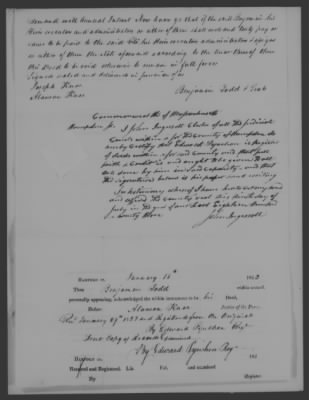 demand with Annual Interest Now know ye that if the said Benjamin his
Heirs executors and administrators or either of them shall and do truly pay or
cause to be paid to the said his Heirs executors administrators assigns
or either of them the Note aforesaid according to the true tenor of them
this Deed to be void otherwise to remain in full force
Signed sealed and delivered in presence of us
Joseph Knox
Alanson Knox
Benjamin Todd & Seal
Commonwealth of Massachusetts
Hampden Ss. I John Ingersoll Clerk of all the Judicial
Courts within & for the County of Hampden do
hereby Certify that Edward Pynchon is Register
of deeds within & for said county and that full
faith & credit is and ought to be given to all
acts done by him in said capacity and that
the signature below is his proper hand writing
In testimony whereof I have hereunto
and affixed the county seal this day of
July in the year of our Lord Eighteen hundred
twenty three
John Ingersoll
Hampden ss. January 16th 182
Then Benjamin Todd within named,
personally appearing, acknowledged the within instrument to be his Deed,
Before Alanson Knox Justice of the Peace
Recd January 29th and Registered from the Original
By Edward Pynchon Regr
True Copy of Record Examined
By Edward Pynchon Regr
Hampden ss. 182
Received and Registered, Lib. Fol. and examined
By Register.